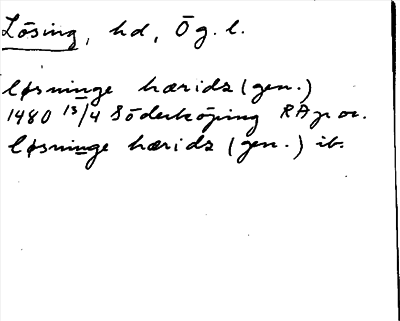 Lösing, hd, Ög. l.
løsninge hæridz (gen.)
1480 13/4 Söderköping RA p or.
løsninge hæridz (gen.) ib.